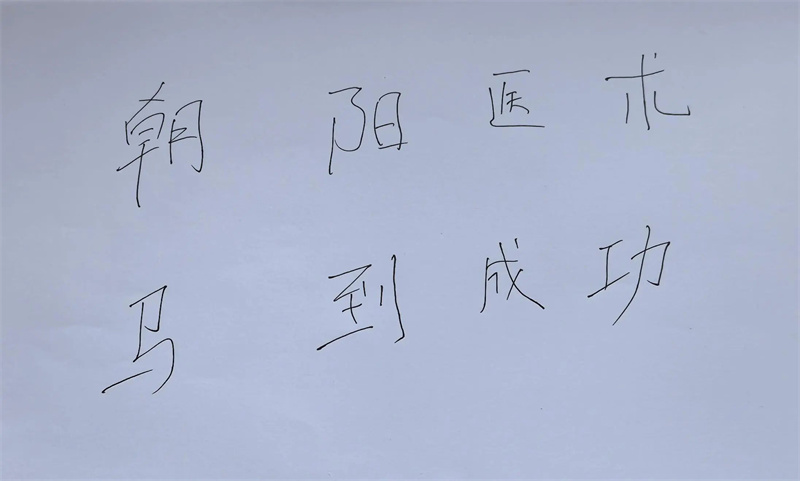 朝阳医术
马到成功